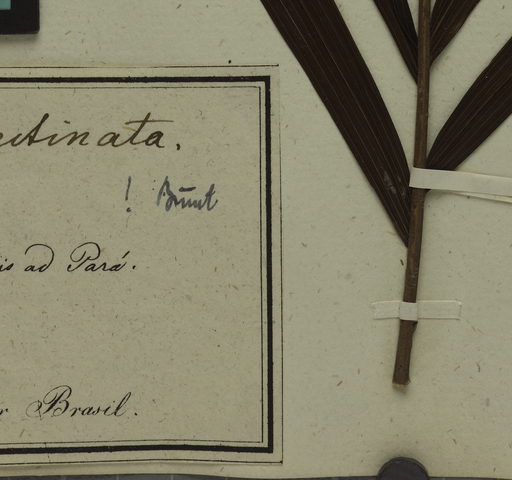 ctinata.
! Burret
is ad Pará.
r Brasil.